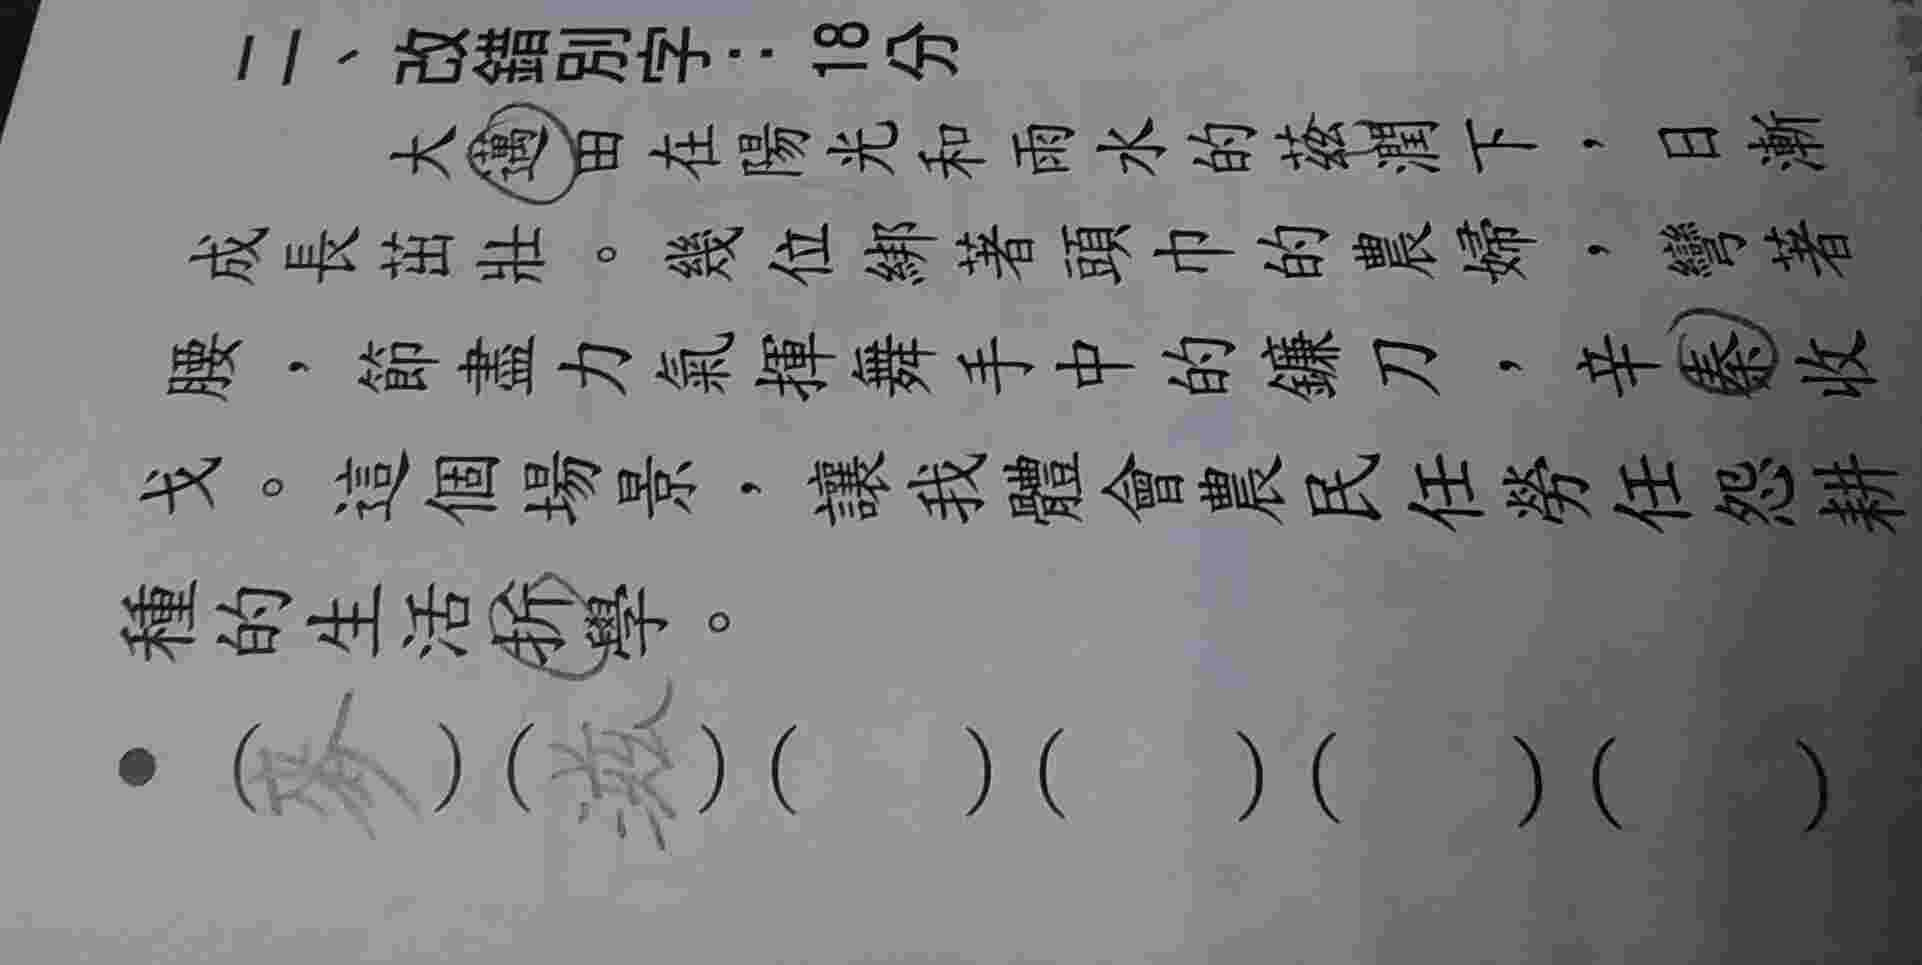 二、改錯別字：18分
大邁田在陽光和雨水的茲潤下，日漸
成長茁壯。幾位綁著頭巾的農婦，彎著
腰，節盡力氣揮舞手中的鐮刀，辛秦收
戈。這個場景，讓我體會農民任勞任怨耕
種的生活折學。
●(麥)(滋)( )( )( )( )